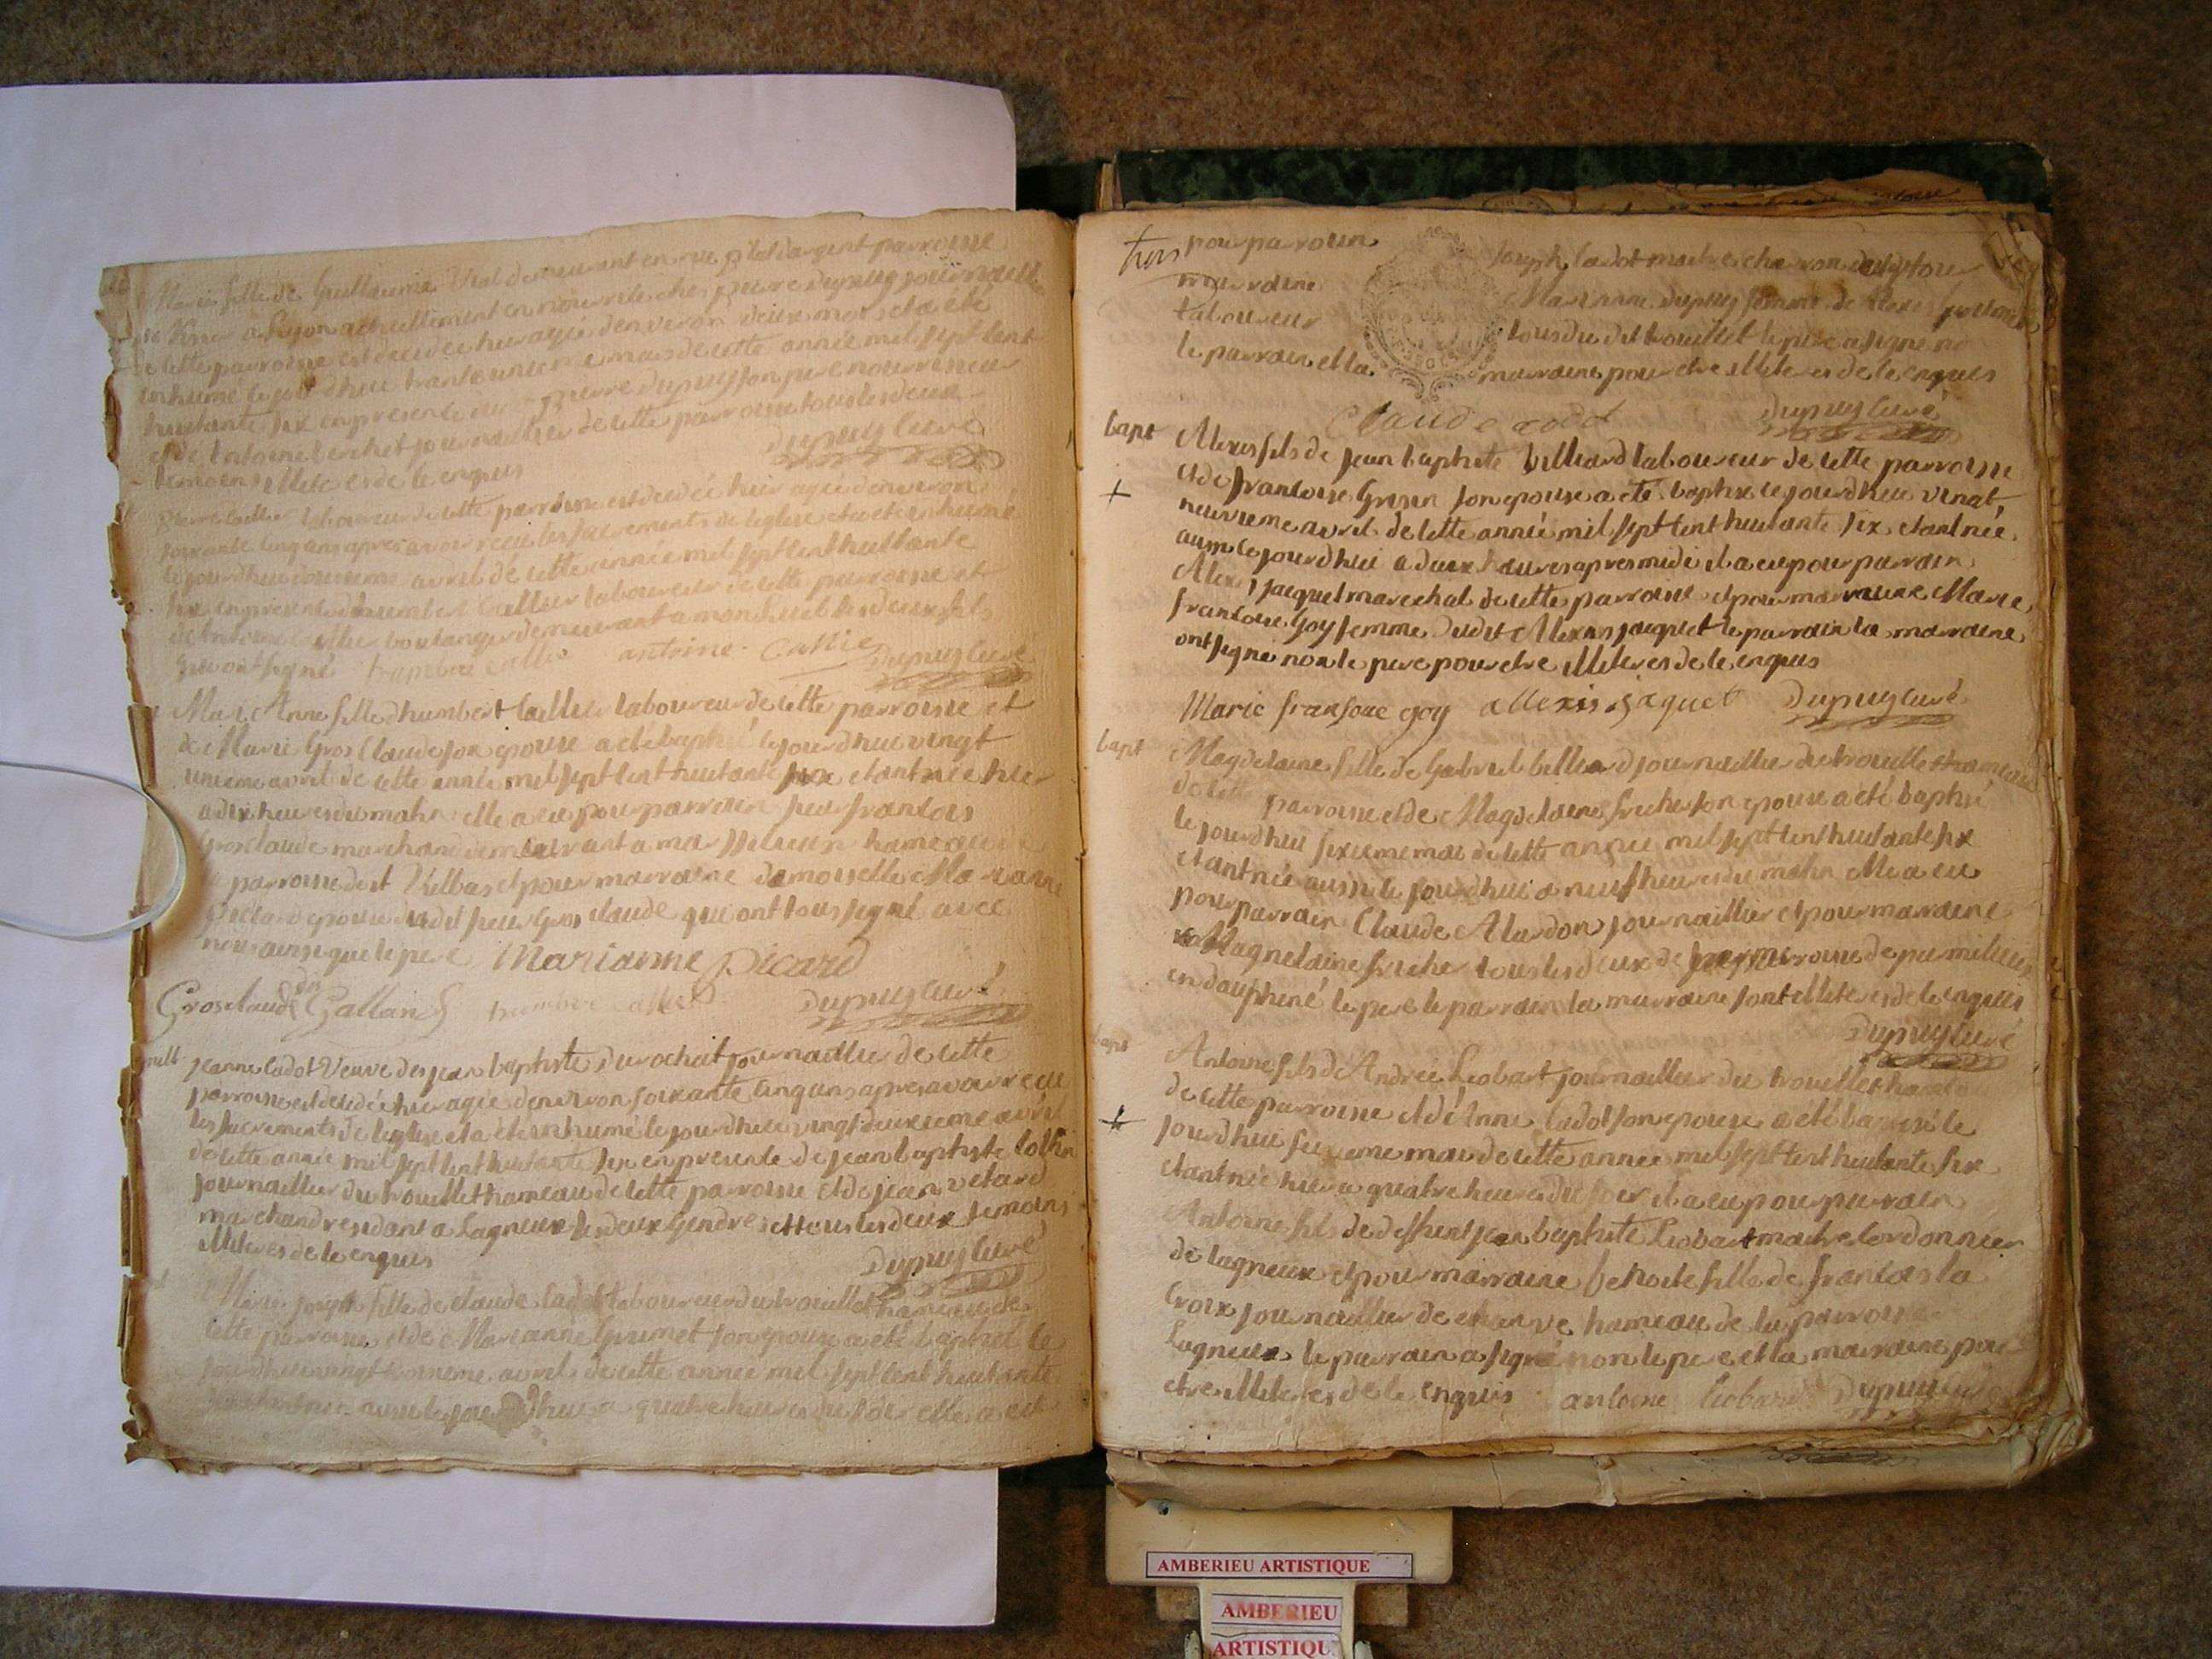 Marie fille de Guillaume Vial demeurant en rue plat dargent parroisse
a Lyon actuellement en nourrice ches pierre Dupuy journaillier
de cette parroisse est decedée hier agée denviron deux mois et a été
inhumé le jourdhui trante unieme mars de cette année mil sept cent
huitante six en presence dud pierre dupuy son pere nourricier
et de Antoine berchet journaillier de cette parroisse tous les deux
temoins illiteres de ce enquis Dupuy curé
laboureur de cette parroisse est decedé hier agé denviron
soixante cinq ans apres avoir recu les sacrements de leglise et a été inhumé
le jourdhui douzieme avril de cette année mil sept cent huitante
six en presence dhumbert Caillier laboureur de cette parroisse et
de Antoine Caillier boulanger demeurant a les deux fils
qui ont signé humbert callie antoine callie Dupuy curé
Marie Anne fille dhumbert Caillier laboureur de cette parroisse et
de Marie Gros Claude son epouse a été baptisé le jourdhui vingt
unieme avril de cette année mil sept cent huitante six etant née hier
a dix heures du matin elle a eu pour parrain sieur francois
Gros claude marchand demeurant a hameau de
parroisse de st Vulbas et pour marraine demoiselle Marianne
picard epouse dudit sieur Gros claude qui ont tous signé avec
nous ainsi que le pere Marianne picard
Grosclaude dit Galland humbert callie Dupuy curé
Jeanne Cadot Veuve de jean baptiste Durochat journaillier de cette
parroisse est decedée hier agée denviron soixante cinq ans apres avoir recu
les sacrements de leglise et a été inhumé le jourdhui vingt deuxieme avril
de cette année mil sept cent huitante six en presence de jean baptiste
journaillier du trouillet hameau de cette parroisse et de jean vétard
marchand residant a Lagneux les deux Gendres et tous les deux temoins
illiteres de ce enquis Dupuy curé
Marie joseph fille de claude Cadot laboureur du trouillet hameau de
cette parroisse et de Marianne Grumet son epouse a été baptisé le
jourdhui vingt troisieme avril de cette année mil sept cent huitante
six etant née aussi le jourdhui a quatre heures du soir elle a eu
trois pour parrain joseph Cadot maitre charron
marraine Marianne dupuy femme de
laboureur tous du dit trouillet le pere a signé no
le parrain et la marraine pour etre illiteres de ce enquis
Claude cadot Dupuy curé
bapt Alexis fils de jean baptiste billiard laboureur de cette parroisse
et de francoise Grisin son epouse a été baptisé le jourdhui vingt
neuvieme avril de cette année mil sept cent huitante six etant née
aussi le jourdhui a deux heures apres midi il a eu pour parrain
Alexis jacquet marechal de cette parroisse et pour marraine Marie
francoise Goy femme dudit Alexis jacquet le parrain la marraine
ont signé non le pere pour etre illiteres de ce enquis
Marie fransoae goy allexis jaquet Dupuy curé
bapt Magdelaine fille de Gabriel billiard journaillier du trouillet hameau
de cette parroisse et de Magdelaine son epouse a été baptisé
le jourdhui sixieme mai de cette année mil sept cent huitante six
etant née aussi le jourdhui a neuf heures du matin elle a eu
pour parrain Claude Alardon journaillier et pour marraine
Magnelaine tous les deux de parroisse de
en dauphiné le pere le parrain la marraine sont illiteres de ce enquis
Dupuy curé
bapt Antoine fils dAndrée Liobart journaillier du trouillet hameau
de cette parroisse et dAnne Cadot son epouse a été baptisé le
jourdhui sixieme mai de cette année mil sept cent huitante six
etant née hier a quatre heures du soir il a eu pour parrain
Antoine fils de deffunt jean baptiste Liobart maitre Cordonnier
de lagneux et pour marraine benoite fille de francois la
Croix journaillier de hameau de la parroisse
Lagneux le parrain a signé non le pere et la marraine pour
etre illiteres de ce enquis antoine liobard Dupuy curé
AMBERIEU ARTISTIQUE
AMBERIEU
ARTISTIQU